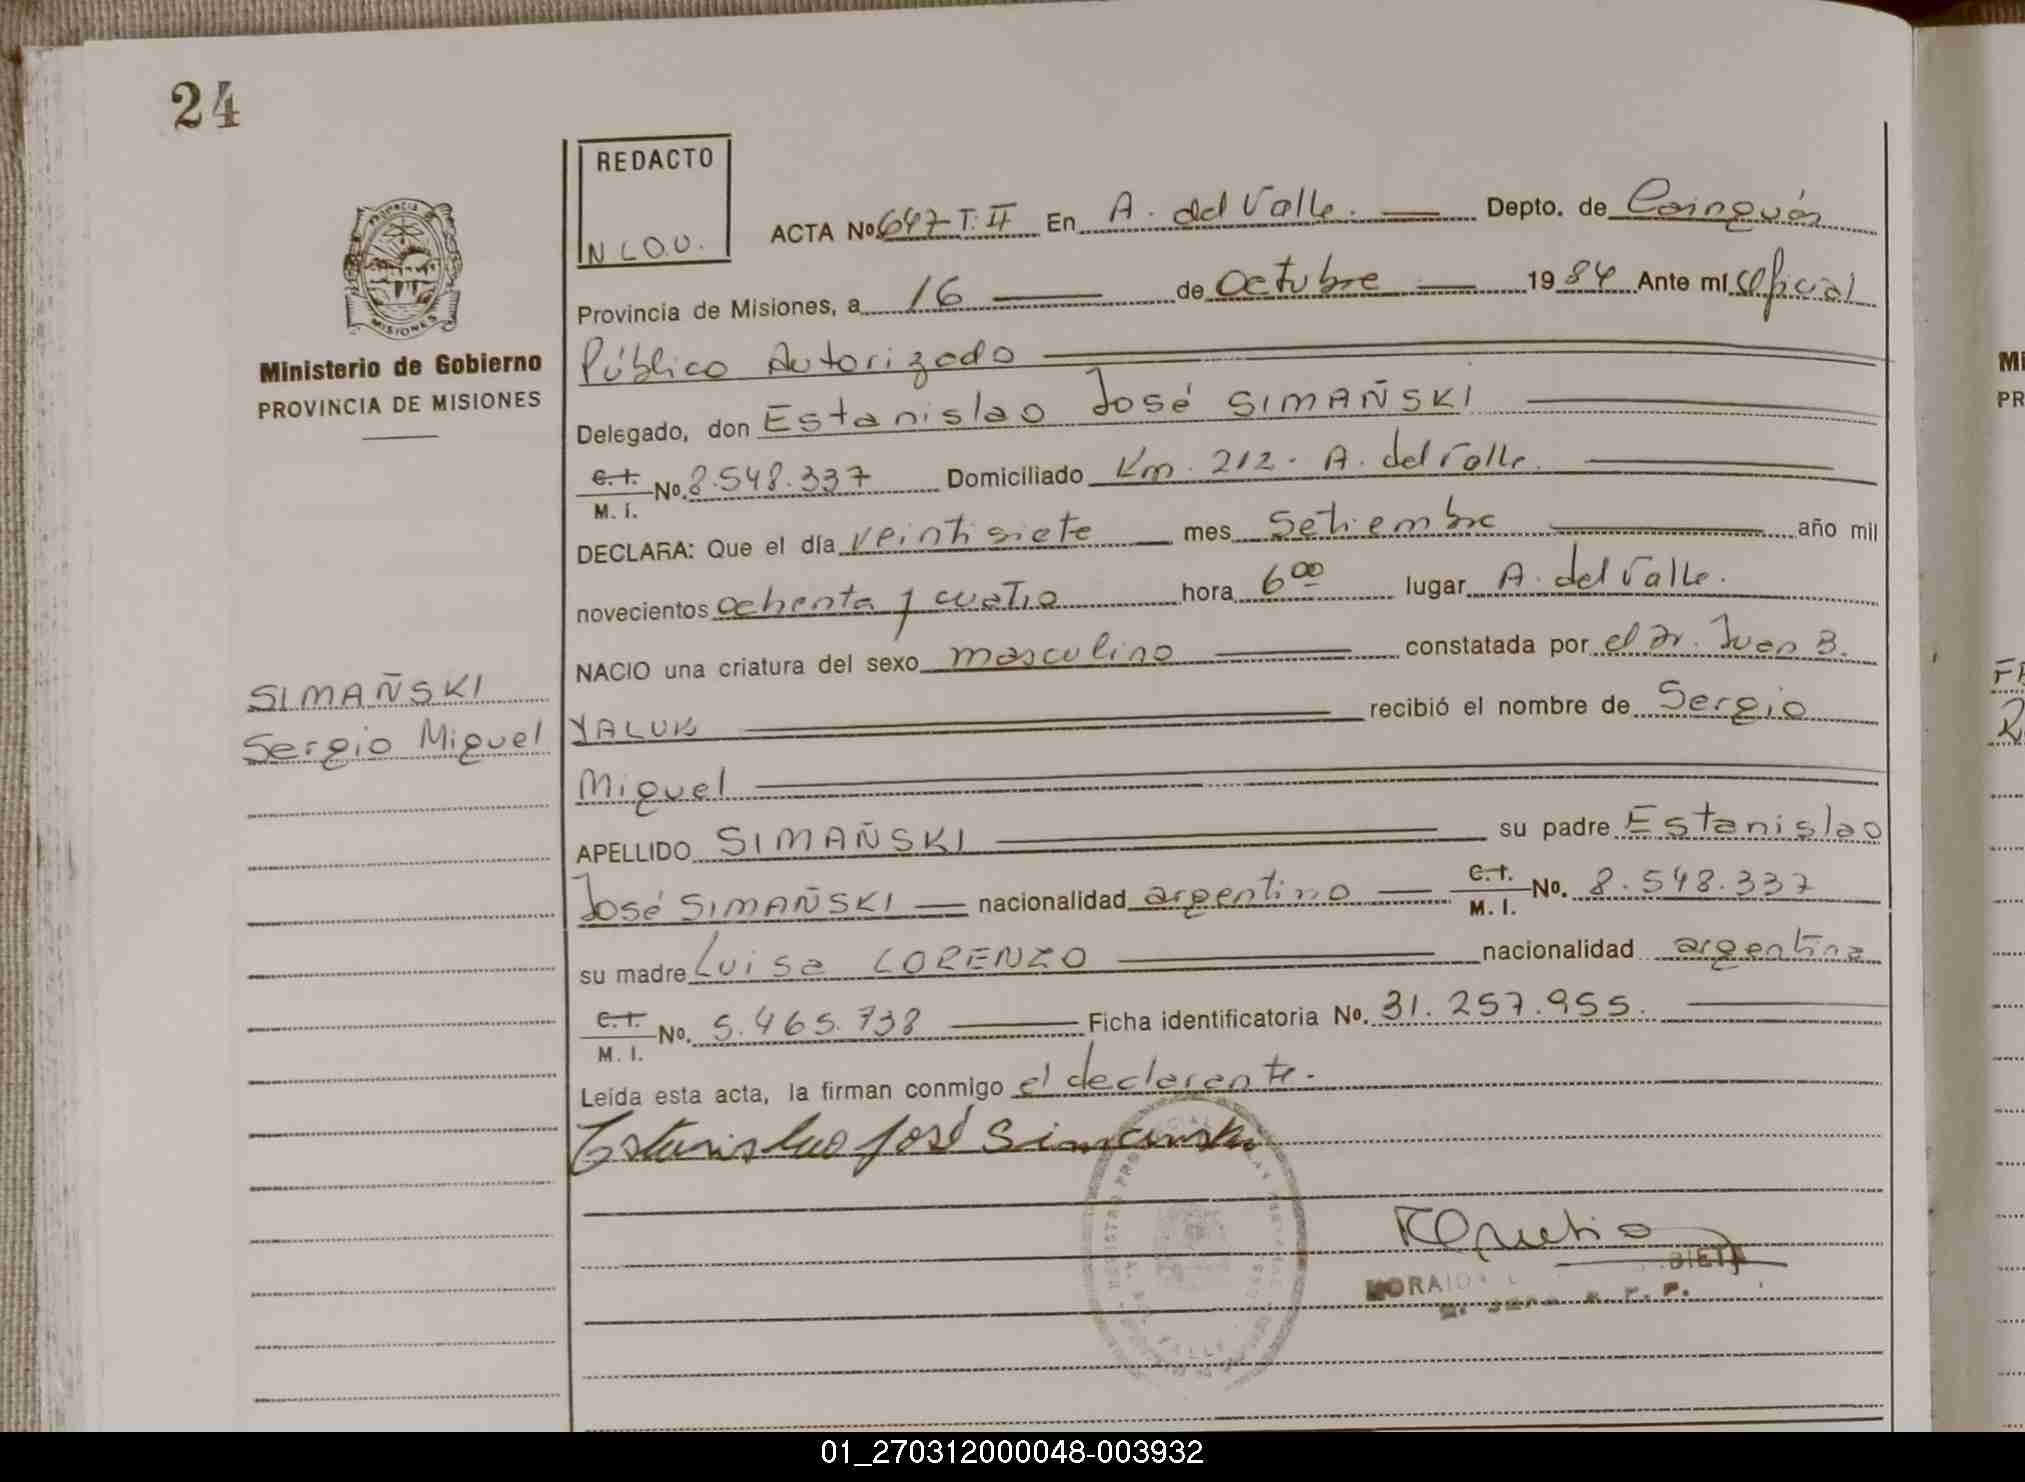 24
REDACTO
N L O.U.
ACTA No. 647-T.II En A. del Valle. Depto. de Cainguás
Provincia de Misiones, a 16 de Octubre 1984 Ante mí Oficial
Público Autorizado
Ministerio de Gobierno
PROVINCIA DE MISIONES
Delegado, don Estanislao José SIMAÑSKI
C. I. M. I. No. 8.548.337 Domiciliado Km. 212. A. del Valle.
DECLARA: Que el día veintisiete mes Setiembre año mil
novecientos ochenta y cuatro hora 6 00 lugar A. del Valle.
NACIO una criatura del sexo masculino constatada por el Dr. Juan B.
SIMAÑSKI
Sergio Miguel
YALUK recibió el nombre de Sergio
Miguel
APELLIDO SIMAÑSKI su padre Estanislao
José SIMAÑSKI nacionalidad argentino C. I. M. I. No. 8.548.337
su madre Luisa LORENZO nacionalidad argentina
C. I. M. I. No. 5.465.738 Ficha identificatoria No. 31.257.955.
Leída esta acta, la firman conmigo el declarante.
Estanislao José Simanski
MORAID
PROVINCIA
MISIONES
01_270312000048-003932